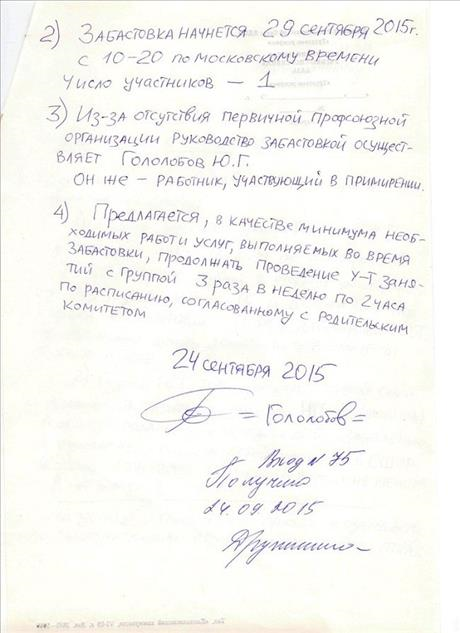 2) Забастовка начнется 29 сентября 2015г.
с 10-20 по московскому времени
Число участников — 1
3) Из-за отсутствия первичной профсоюзной
организации руководство забастовкой осущест-
вляет Гололобов Ю.Г.
Он же — работник, участвующий в примирении.
4) Предлагается, в качестве минимума необ-
ходимых работ и услуг, выполняемых во время
забастовки, продолжать проведение У-Т заня-
тий с группой 3 раза в неделю по 2 часа
по расписанию, согласованному с родительским
комитетом
24 сентября 2015
= Гололобов =
Вход N 75
Получила
24.09 2015